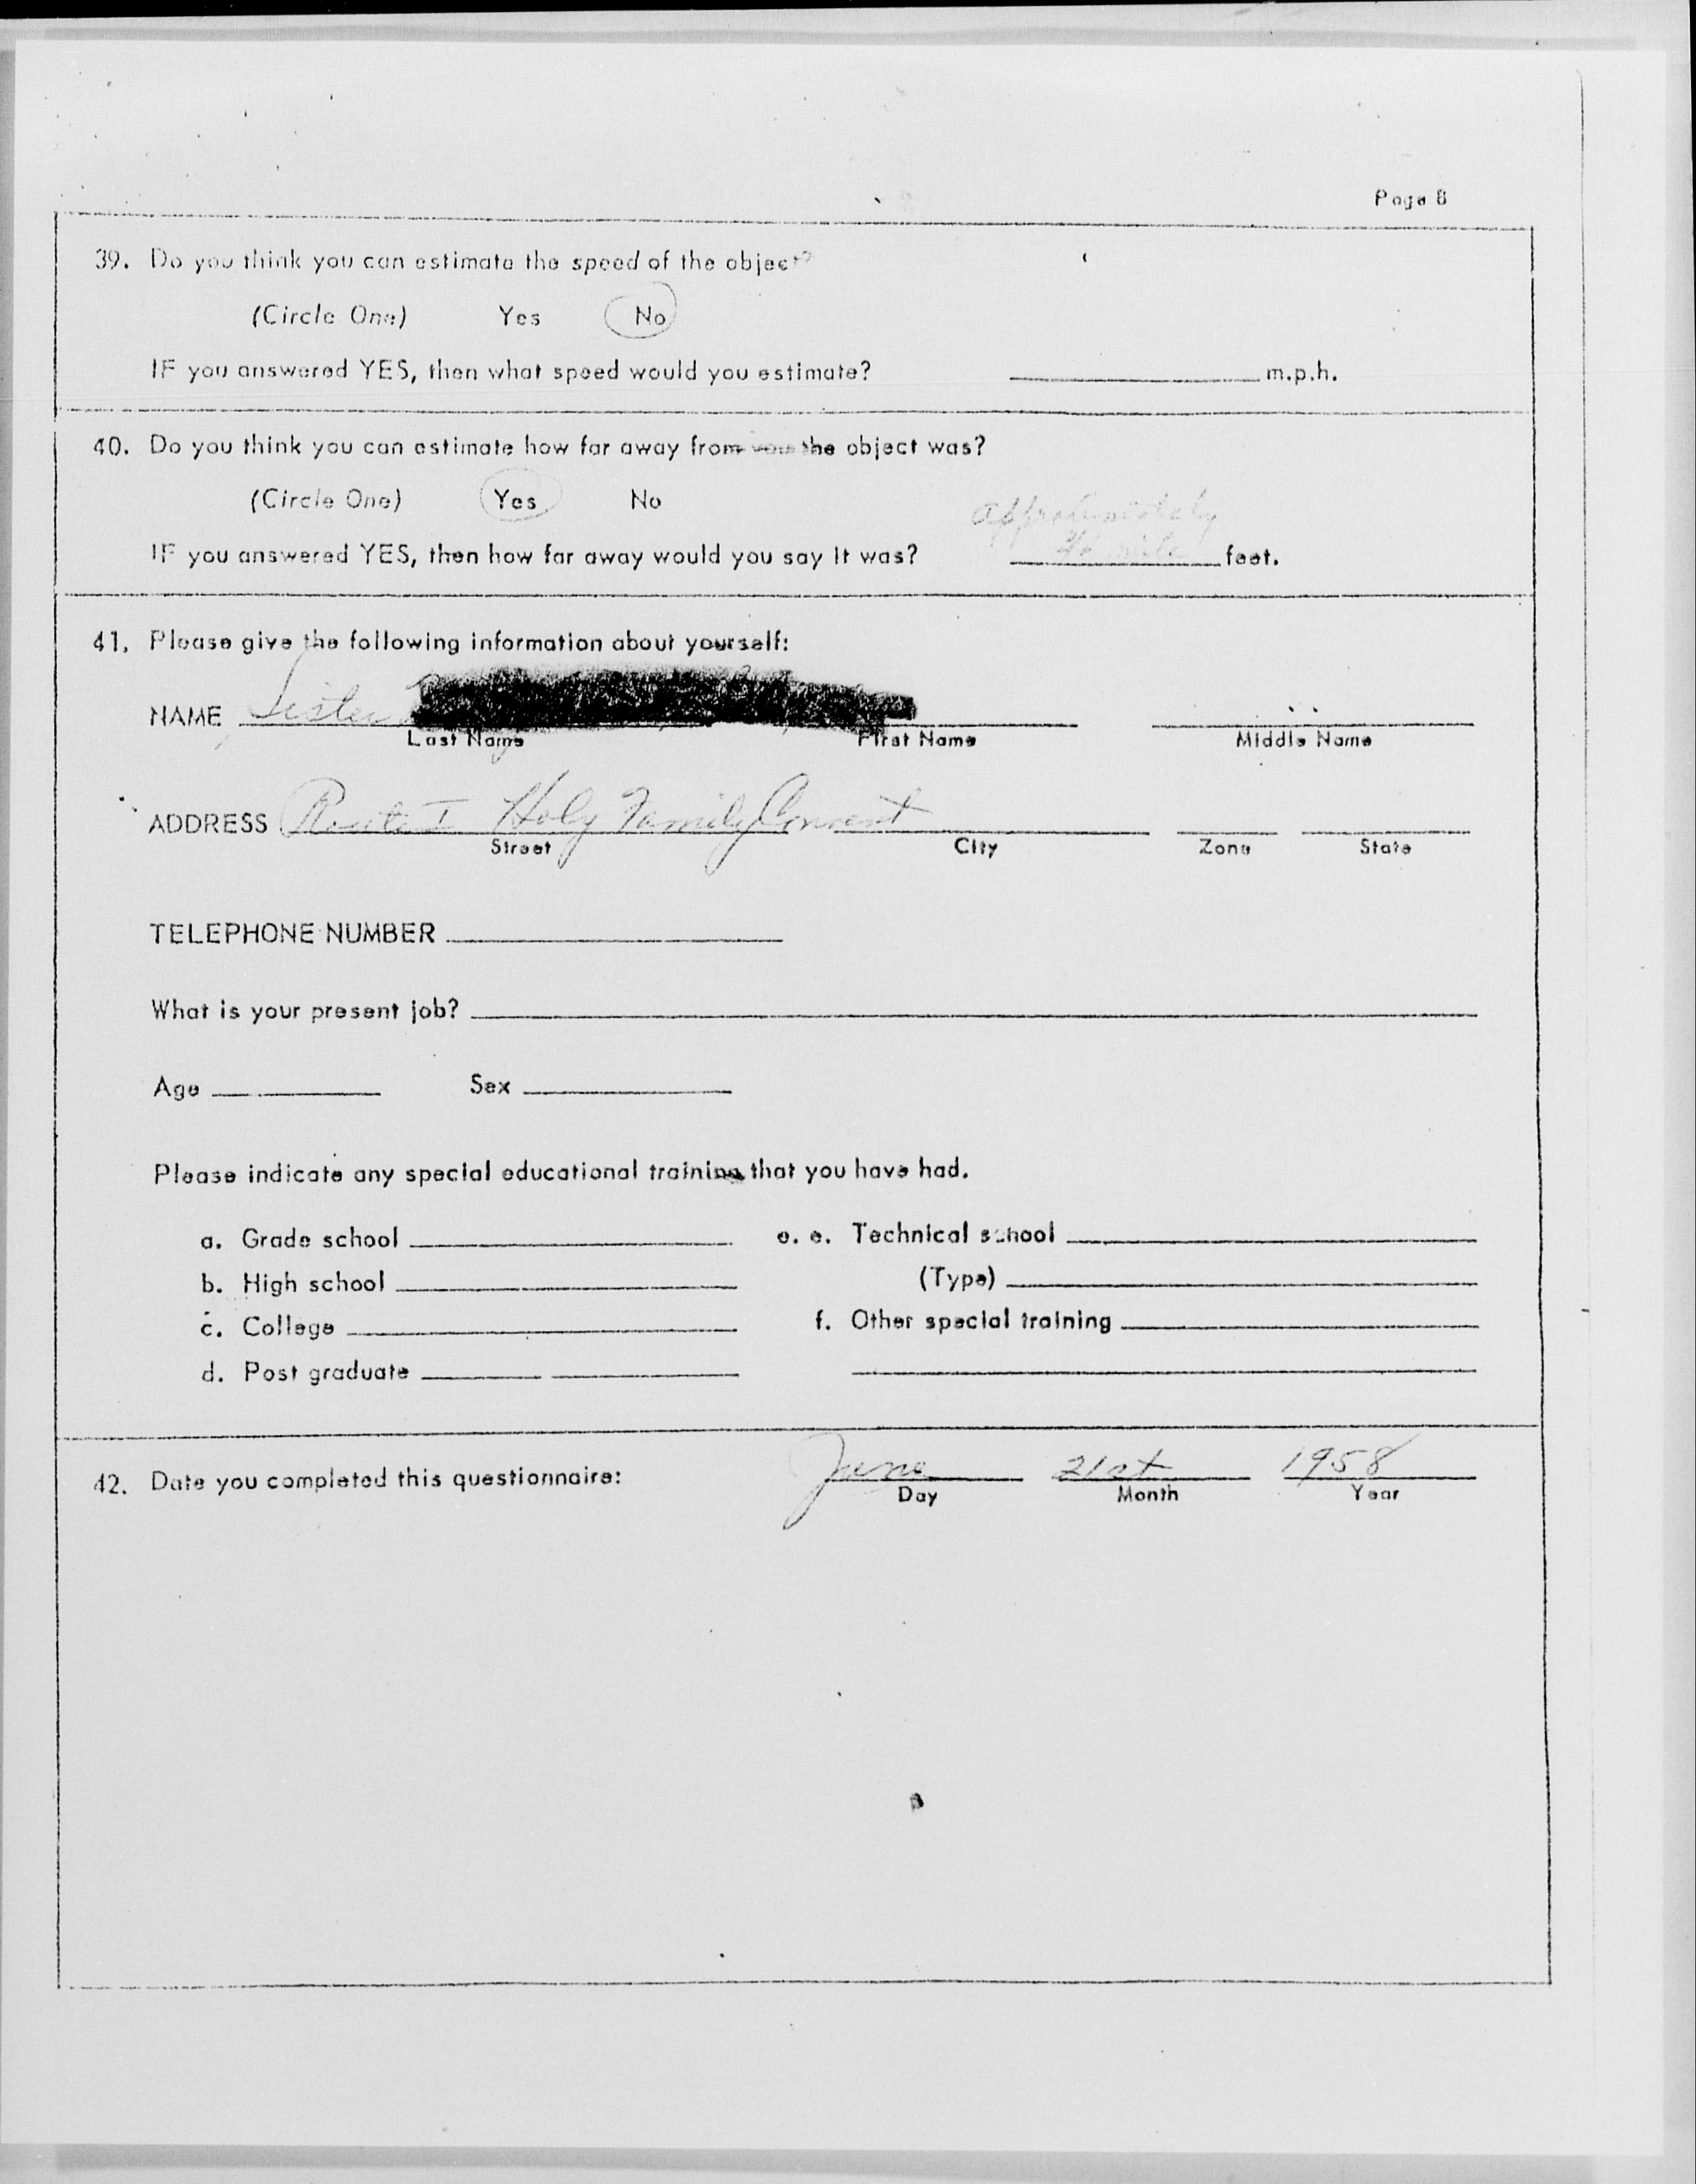 Page 8
39. Do you think you can estimate the speed of the object?
(Circle One) Yes No
IF you answered YES, then what speed would you estimate? m.p.h.
40. Do you think you can estimate how far away from you the object was?
(Circle One) Yes No
approximately
IF you answered YES, then how far away would you say it was? mile feet.
41. Please give the following information about yourself:
NAME Sister
Last Name First Name Middle Name
ADDRESS Route I Holy Family Convent
Street City Zone State
TELEPHONE NUMBER
What is your present job?
Age Sex
Please indicate any special educational training that you have had.
a. Grade school e. e. Technical school
b. High school (Type)
c. College f. Other special training
d. Post graduate
42. Date you completed this questionnaire: June 21st 1958
Day Month Year